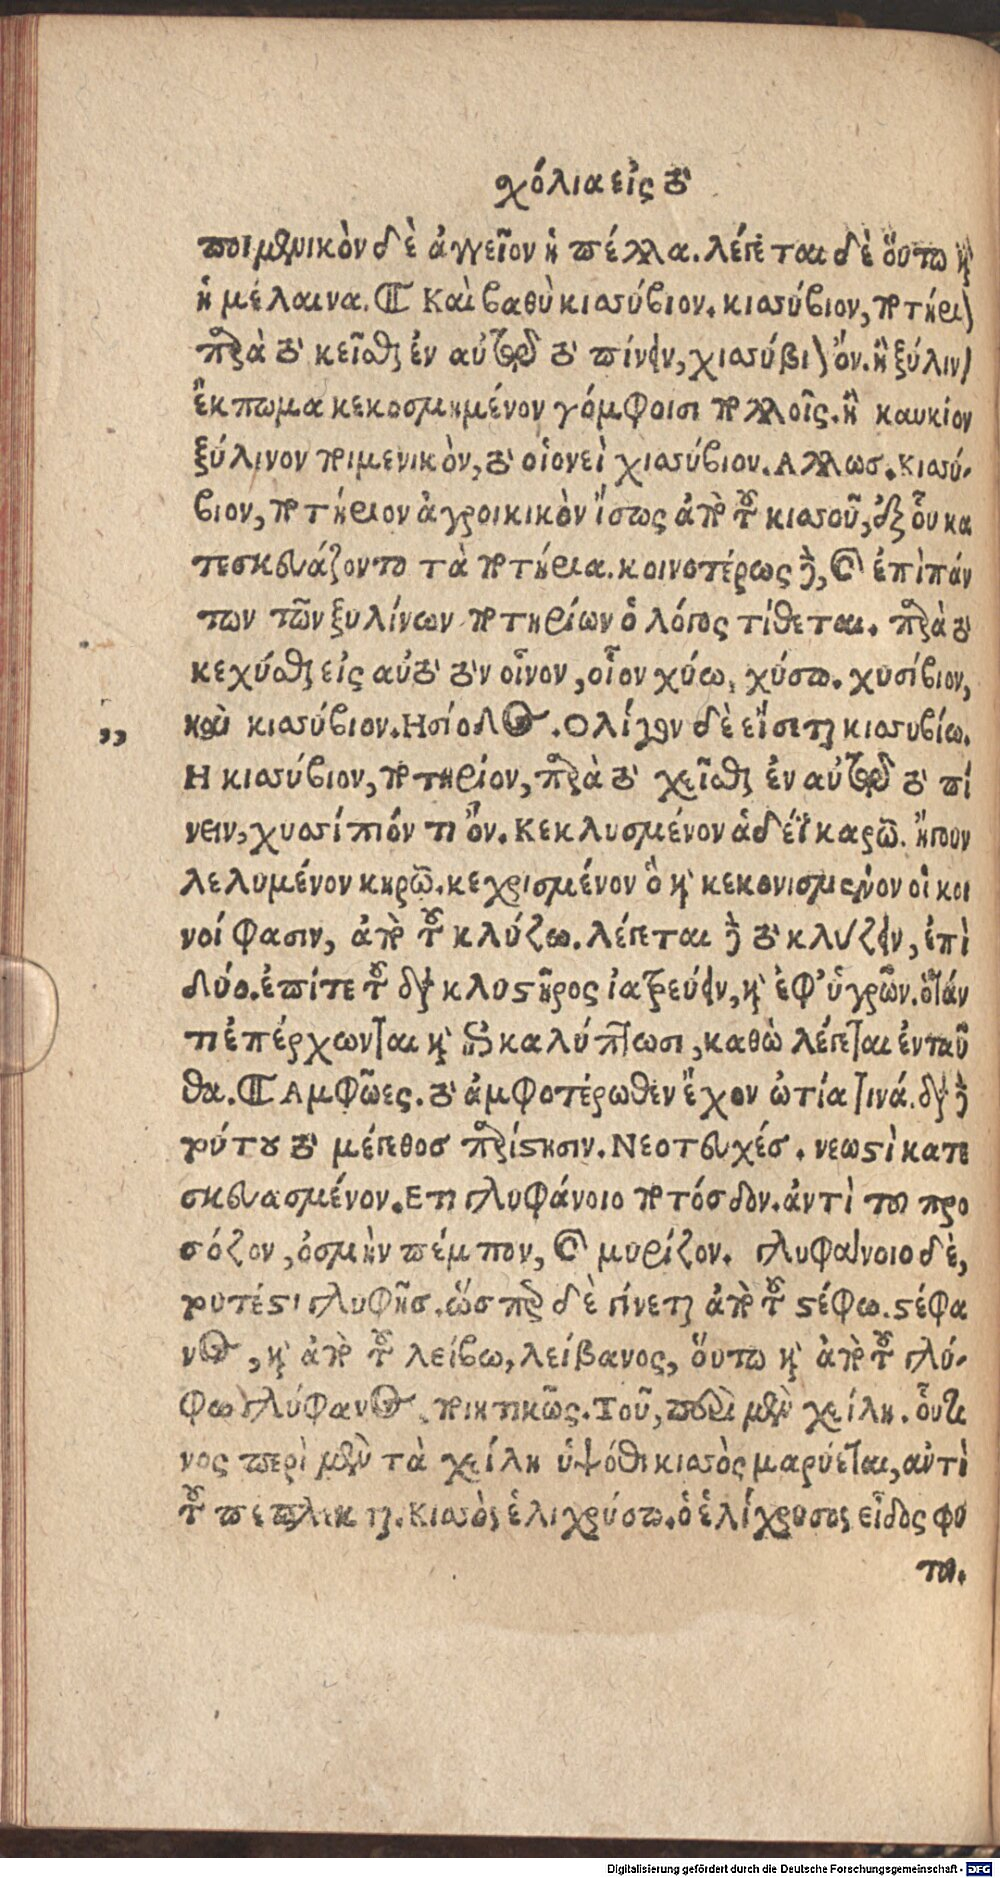 χόλια εἰς τὸ
ποιμενικὸν δὲ ἀγγεῖον ἡ πέλλα. λέγεται δὲ οὕτω καὶ
ἡ μέλαινα. Καὶ βαθὺ κισσύβιον. κισσύβιον, ποτήριον
παρὰ τὸ κεῖσθαι ἐν αὐτῷ τὸ πίνειν, χισσύβιον ὄν. ἢ ξύλινον
ἔκπωμα κεκοσμημένον γόμφοισι πολλοῖς. ἢ καυκίον
ξύλινον ποιμενικὸν, τὸ οἱονεὶ χισσύβιον. Αλλωσ. Κισσύ-
βιον, ποτήριον ἀγροικικὸν ἴσως ἀπὸ τοῦ κισσοῦ, ἐξ οὗ κα
τεσκευάζοντο τὰ ποτήρια. κοινοτέρως δὲ, καὶ ἐπὶ πάν
των τῶν ξυλίνων ποτηρίων ὁ λόγος τίθεται. παρὰ τὸ
κεχύσθαι εἰς αὐτὸ τὸν οἶνον, οἷον χύω, χύσω. χυσίβιον,
καὶ κισσύβιον. Ησίοδος. Ολίγον δὲ εἴσεται κισσυβίω.
Η κισσύβιον, ποτηρίον, παρὰ τὸ χεῖσθαι ἐν αὐτῷ τὸ πί
νειν, χυοσίπιόν τι ὄν. Κεκλυσμένον ἁδέϊ καρῶ. ἤγουν
λελυμένον κηρῶ. κεχρισμένον ὃ καὶ κεκονισμένον οἱ κοι
νοί φασιν, ἀπὸ τοῦ κλύζω. λέγεται δὲ τὸ κλύζειν, ἐπὶ
δύο. ἐπί τε τοῦ διὰ κλυστῆρος ἰατρεύειν, καὶ ἐφ' ὑγρῶν. ὅταν
τι ἐπέρχωνται καὶ καλύπτωσι, καθὼ λέγεται ἐνταῦ
θα. Αμφῶες. τὸ ἀμφοτέρωθεν ἔχον ὠτία τινά. διὰ δὲ
τούτου τὸ μέγεθοσ παρίστησιν. Νεοτευχές. νεωστὶ κατε
σκευασμένον. Ετι γλυφάνοιο ποτόσδον. ἀντὶ του προ
σόζον, ὀσμὴν πέμπον, καὶ μυρίζον. γλυφαίνοιο δὲ,
τουτέστι γλυφῆσ. ὥσπερ δὲ γίνεται ἀπὸ τοῦ στέφω. στέφα
νος, καὶ ἀπὸ τοῦ λείβω, λείβανος, οὕτω καὶ ἀπὸ τοῦ γλύ-
φω γλύφανος, ποιητικῶς. Τοῦ, ποτὶ μὲν χείλη. οὗτι
νος περὶ μὲν τὰ χείλη ὑψόθι κισσὸς μαρύεται, αὐτὶ
τοῦ πεπλεκται. Κισσὸς ἑλιχρύσω. ὁ ἑλίχρυσος εἶδος φυ
του.
Digitalisierung gefördert durch die Deutsche Forschungsgemeinschaft - DFG